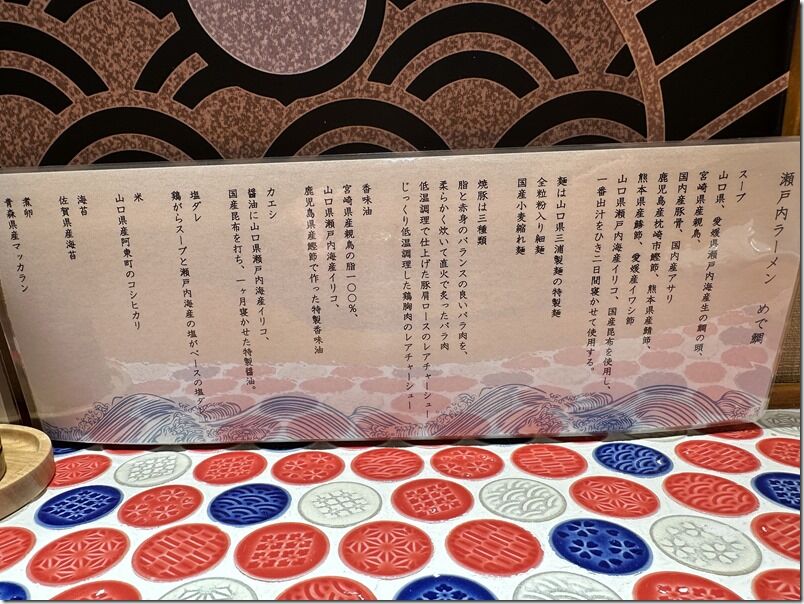 瀬戸内ラーメン　めで鯛
スープ
山口県、愛媛県瀬戸内海産生の鯛の頭、
宮崎県産親鳥、
国内産豚骨、国内産アサリ
鹿児島産枕崎市鰹節、熊本県産鯖節、
熊本県産鯵節、愛媛産イワシ節
山口県瀬戸内海産イリコ、国産昆布を使用し、
一番出汁をひき二日間寝かせて使用する。
麺は山口県三浦製麺の特製麺
全粒粉入り細麺
国産小麦縮れ麺
焼豚は三種類
脂と赤身のバランスの良いバラ肉を、
柔らかく炊いて直火で炙ったバラ肉
低温調理で仕上げた豚肩ロースのレアチャーシュー
じっくり低温調理した鶏胸肉のレアチャーシュー
香味油
宮崎県産親鳥の脂一〇〇%、
山口県瀬戸内海産イリコ、
鹿児島県産鰹節で作った特製香味油
カエシ
醤油に山口県瀬戸内海産イリコ、
国産昆布を打ち、一ヶ月寝かせた特製醤油。
塩ダレ
鶏がらスープと瀬戸内海産の塩がベースの塩ダレ
米
山口県産阿東町のコシヒカリ
海苔
佐賀県産海苔
煮卵
青森県産マッカラン